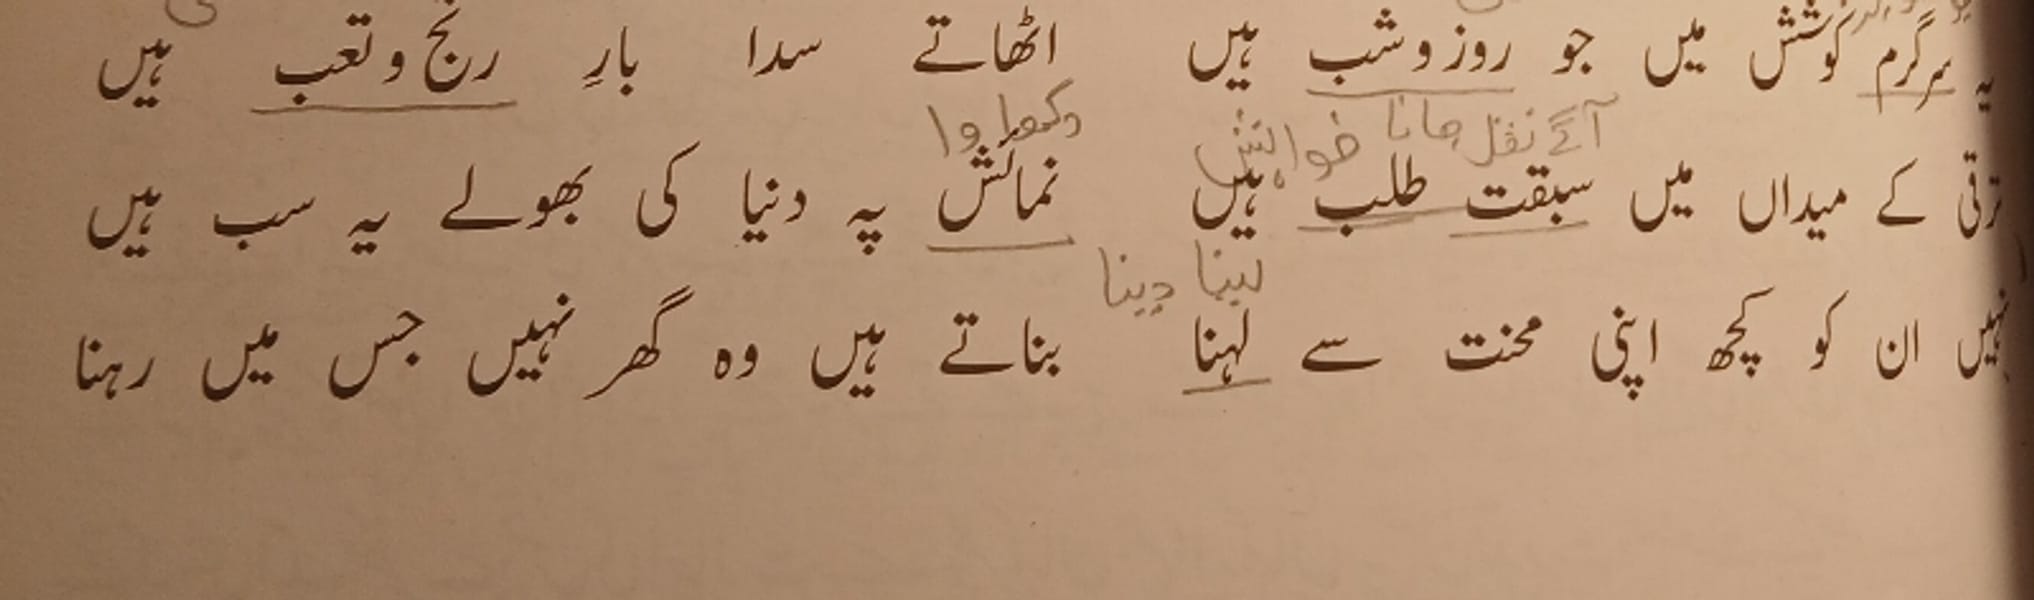 یہ سرگرم کوشش میں جو روز و شب ہیں اٹھاتے سدا بارِ رنج و تعب ہیں
دکھاوا آگے نقل جانا خواہش
ترقی کے میداں میں سبقت طلب ہیں نمائش پہ دنیا کی بھولے یہ سب ہیں
لینا دینا
نہیں ان کو کچھ اپنی محنت سے لہنا بناتے ہیں وہ گھر نہیں جس میں رہنا